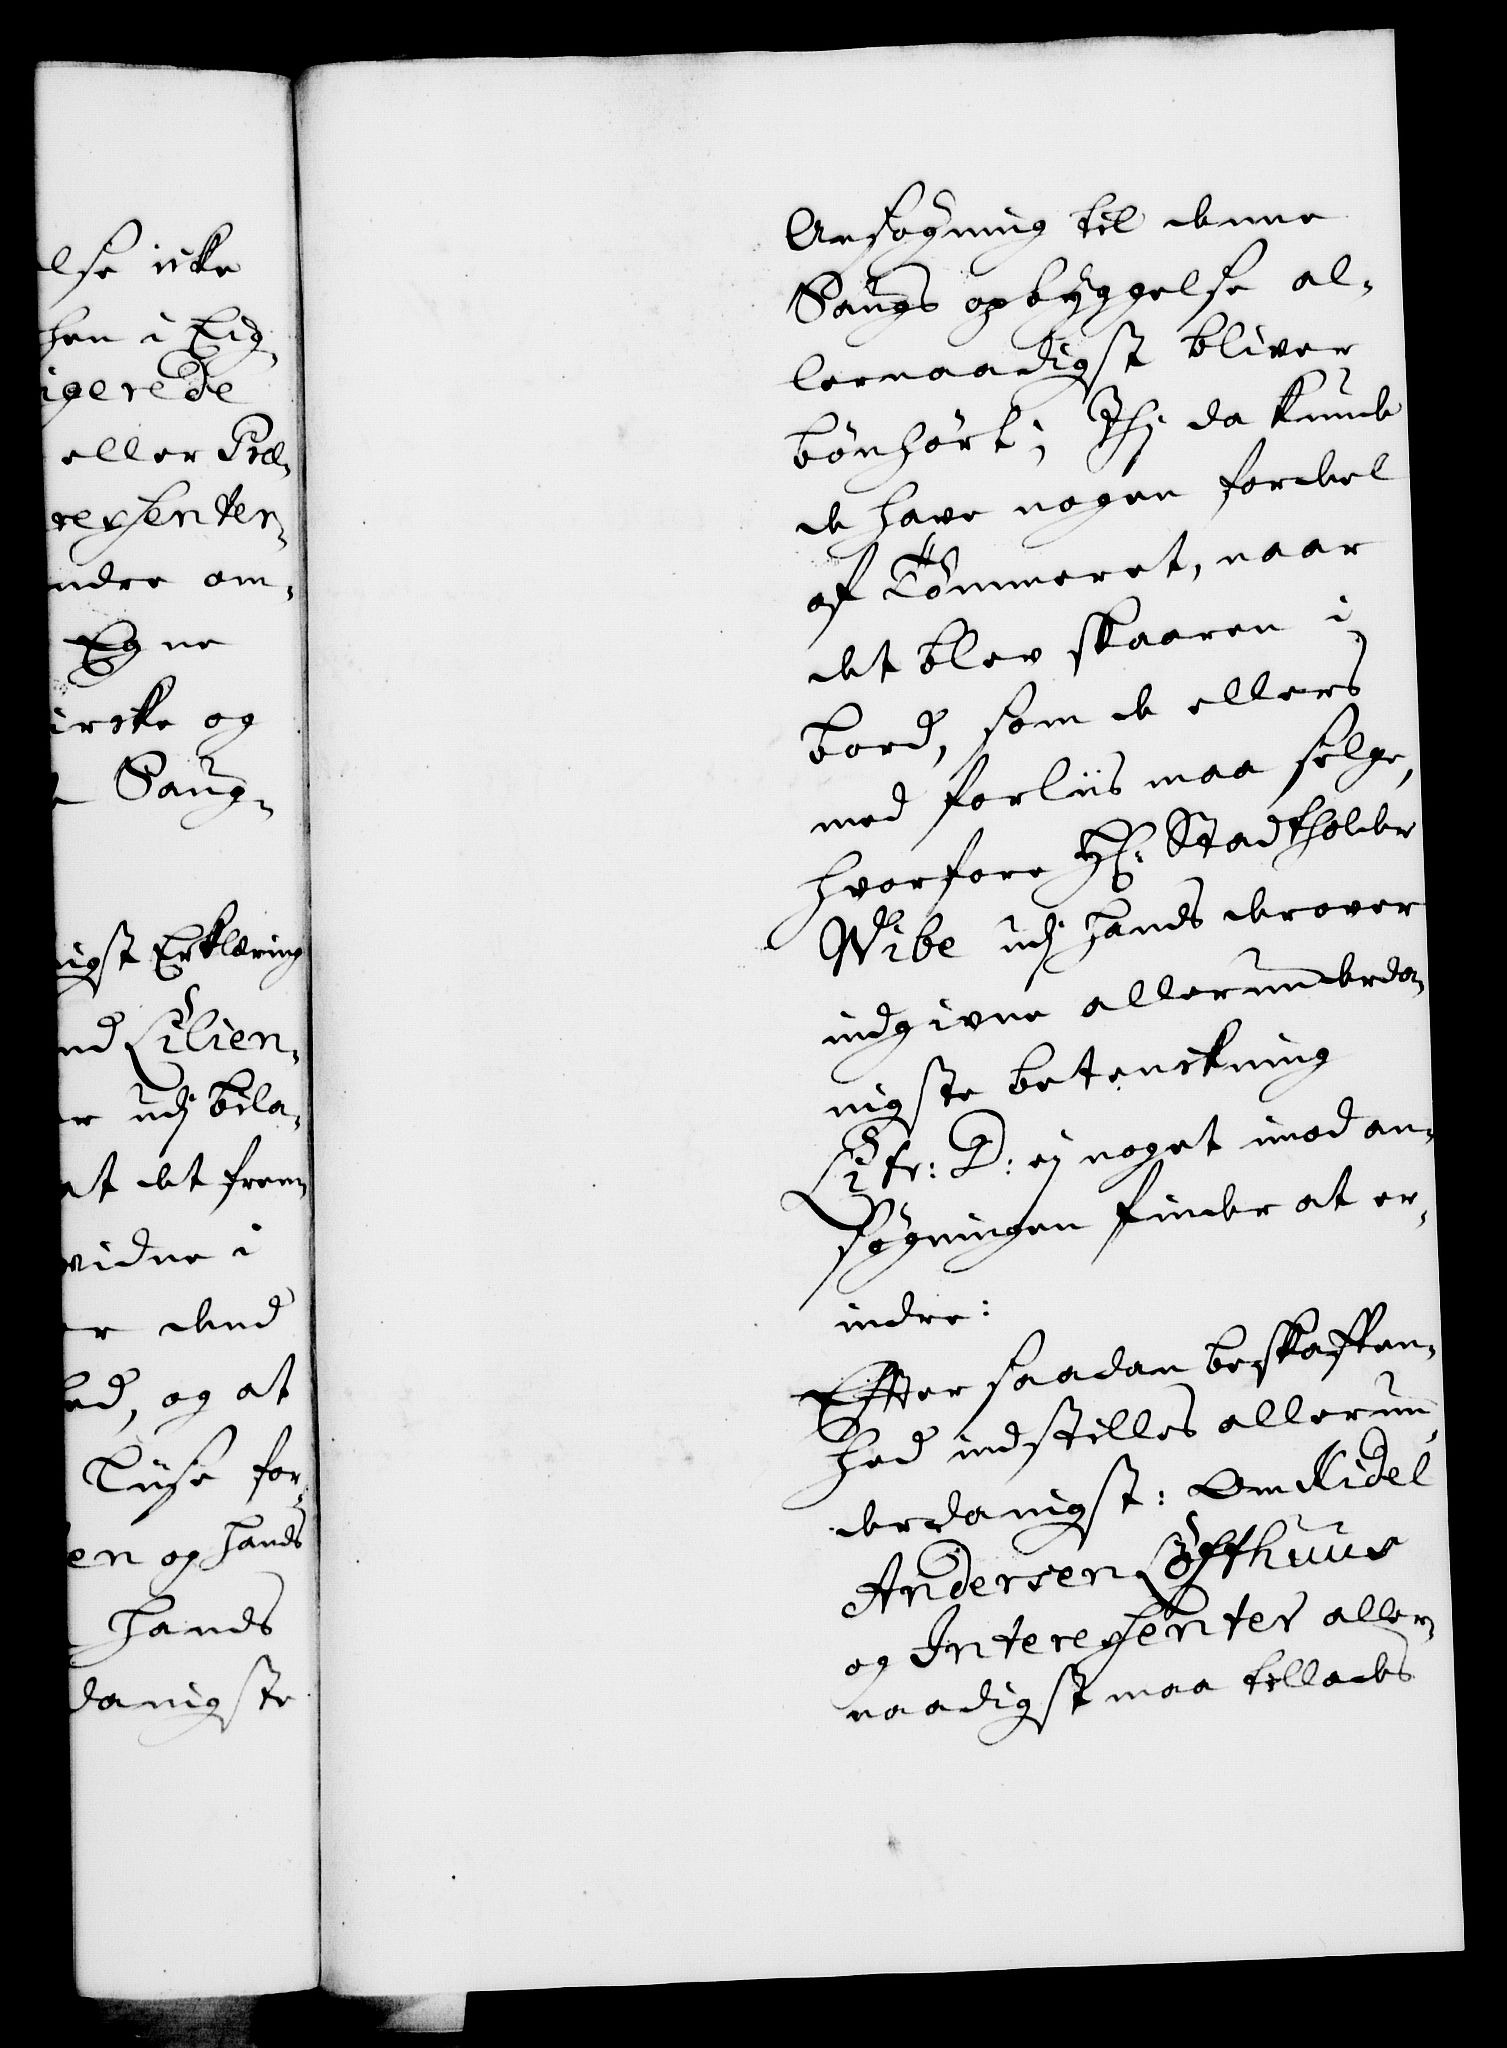 lse icke
hen i Eig„
igerede
eller Præ„
ressenter„
ndre om„
Egne
ircke og
Saug„
igst Erklæring
nd Lilien„
r udj bila„
at det frem„
vidne i
er dend
ed, og at
Tuse for„
en og hands
hands
danigste
Ansøgning til denne
Saugs opbyggelse al„
lernaadigst bliver
bönhört; Thj da kunde
de have nogen fordeel
af Tömmeret, naar
det blev skaaren i
bord, som de ellers
med forliis maa selge,
hvorfore Hr: Stadtholder
Wibe udj hands derover
indgivne allerunderda„
nigste betenckning
Litr: D: ej noget imod an„
søgningen finder at er„
indre:
Efter saadan beskaffen„
hed indstilles allerun„
derdanigst: Om Kidel
Andersen Löffthuus
og Interessenter aller„
naadigst maa tillades